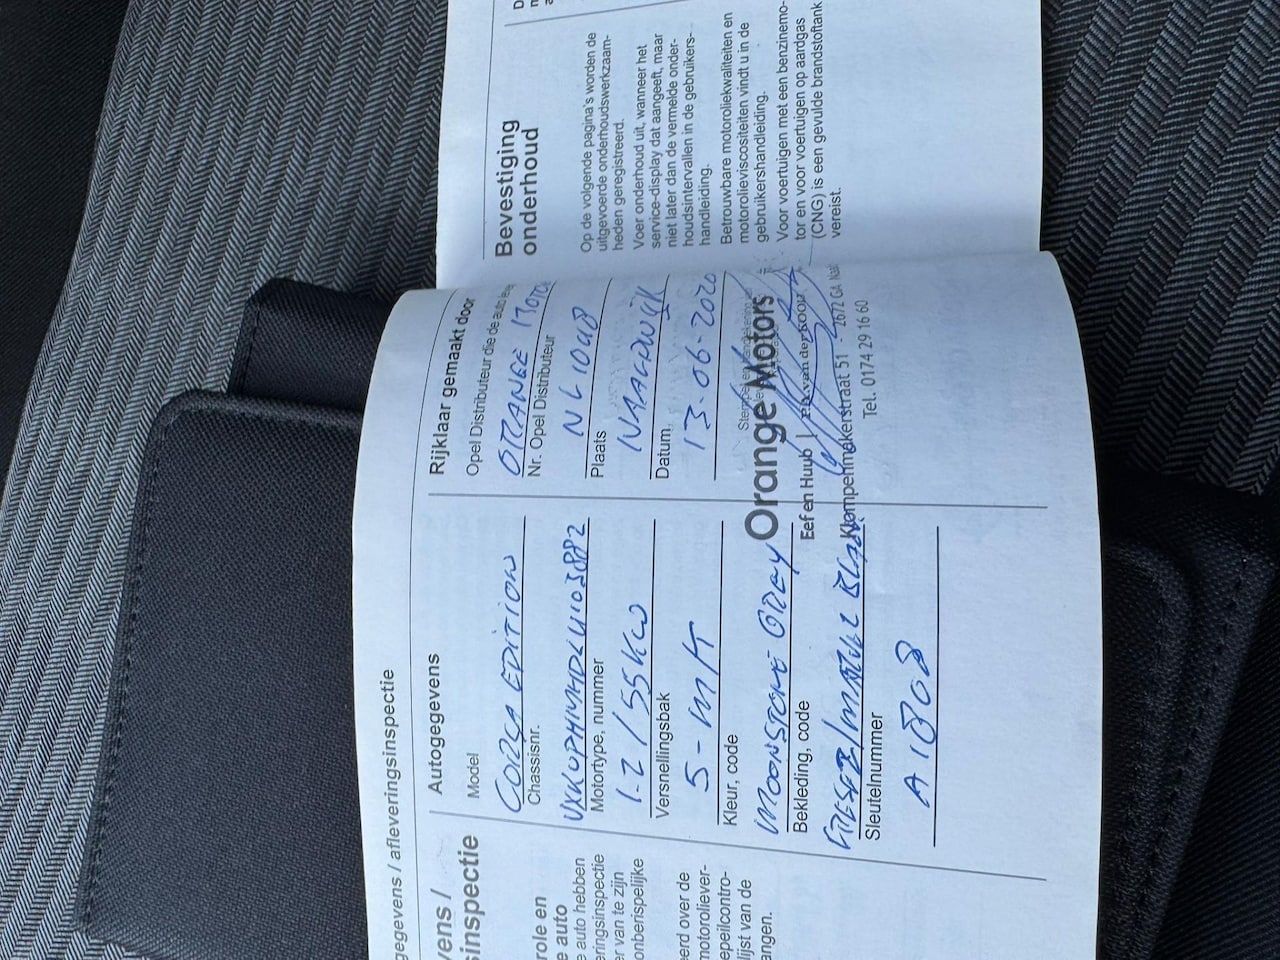 gegevens / afleveringsinspectie
vens /
sinspectie
role en
e auto
e auto hebben
eringsinspectie
er van te zijn
onberispelijke
eerd over de
motoroliever-
epeilcontro-
lijst van de
angen.
Autogegevens
Model
CORSA EDITION
Chassisnr.
Motortype, nummer
1.2 / 55KW
Versnellingsbak
5-M/T
Kleur, code
MOONSTONE GREY
Bekleding, code
Sleutelnummer
Rijklaar gemaakt door
Opel Distributeur die de auto
ORANGE MOTO
Nr. Opel Distributeur
NL 1048
Plaats
NAALDWIJK
Datum
13-06-2020
Orange Motors
Eef en Huub van der Kooij
Klompenmakerstraat 51 - 2672 GA Naa
Tel. 0174 29 16 60
Bevestiging
onderhoud
Op de volgende pagina's worden de
uitgevoerde onderhoudswerkzaam-
heden geregistreerd.
Voer onderhoud uit, wanneer het
service-display dat aangeeft, maar
niet later dan de vermelde onder-
houdsintervallen in de gebruikers-
handleiding.
Betrouwbare motoroliekwaliteiten en
motorolieviscositeiten vindt u in de
gebruikershandleiding.
Voor voertuigen met een benzinemo-
tor en voor voertuigen op aardgas
(CNG) is een gevulde brandstoftank
vereist.